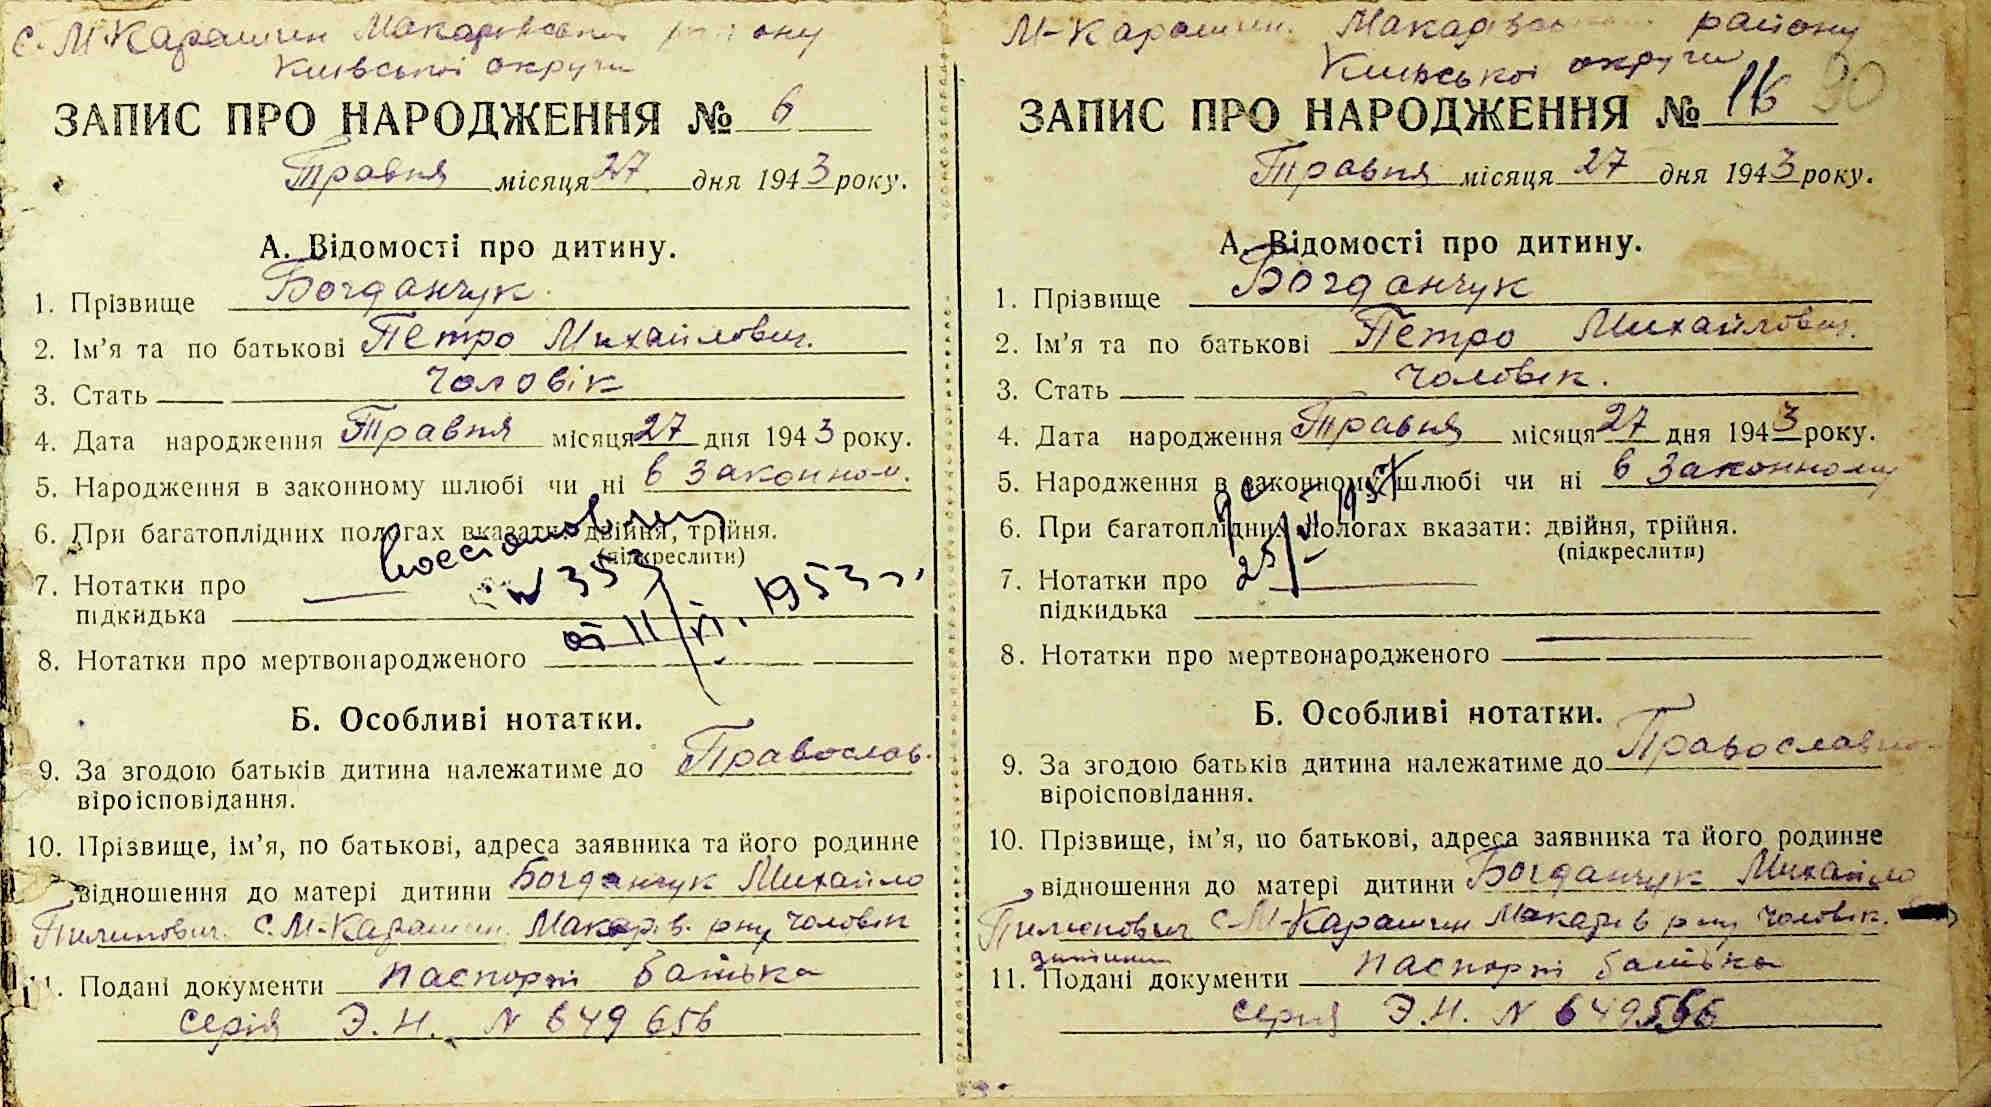 с. М-Карашин Макарівського району
Київської округи
ЗАПИС ПРО НАРОДЖЕННЯ № 6
Травня місяця 27 дня 1943 року.
А. Відомості про дитину.
1. Прізвище Богданчук
2. Ім'я та по батькові Петро Михайлович.
3. Стать чоловік
4. Дата народження Травня місяця 27 дня 1943 року.
5. Народження в законному шлюбі чи ні в законном.
6. При багатоплідних пологах вказати: двійня, трійня.
(підкреслити)
7. Нотатки про
підкидька
№ 353
от 11/VI. 1953 г.
8. Нотатки про мертвонародженого
Б. Особливі нотатки.
9. За згодою батьків дитина належатиме до Православ.
віроісповідання.
10. Прізвище, ім'я, по батькові, адреса заявника та його родинне
відношення до матері дитини Богданчук Михайло
с. М-Карашин Макарів. рну чоловік
11. Подані документи паспорт батька
серія Э.Н. № 649656
М-Карашин Макарівського району
Київської округи
ЗАПИС ПРО НАРОДЖЕННЯ № 16 90
Травня місяця 27 дня 1943 року.
А. Відомості про дитину.
1. Прізвище Богданчук
2. Ім'я та по батькові Петро Михайлович.
3. Стать чоловік.
4. Дата народження Травня місяця 27 дня 1943 року.
5. Народження в законному шлюбі чи ні в законному
6. При багатоплідних пологах вказати: двійня, трійня.
(підкреслити)
7. Нотатки про
підкидька
8. Нотатки про мертвонародженого
Б. Особливі нотатки.
9. За згодою батьків дитина належатиме до Православно
віроісповідання.
10. Прізвище, ім'я, по батькові, адреса заявника та його родинне
відношення до матері дитини Богданчук Михайло
Пименович с М-Карашин Макарів рну чоловік.
11. Подані документи паспорт батька
серия Э.Н. №